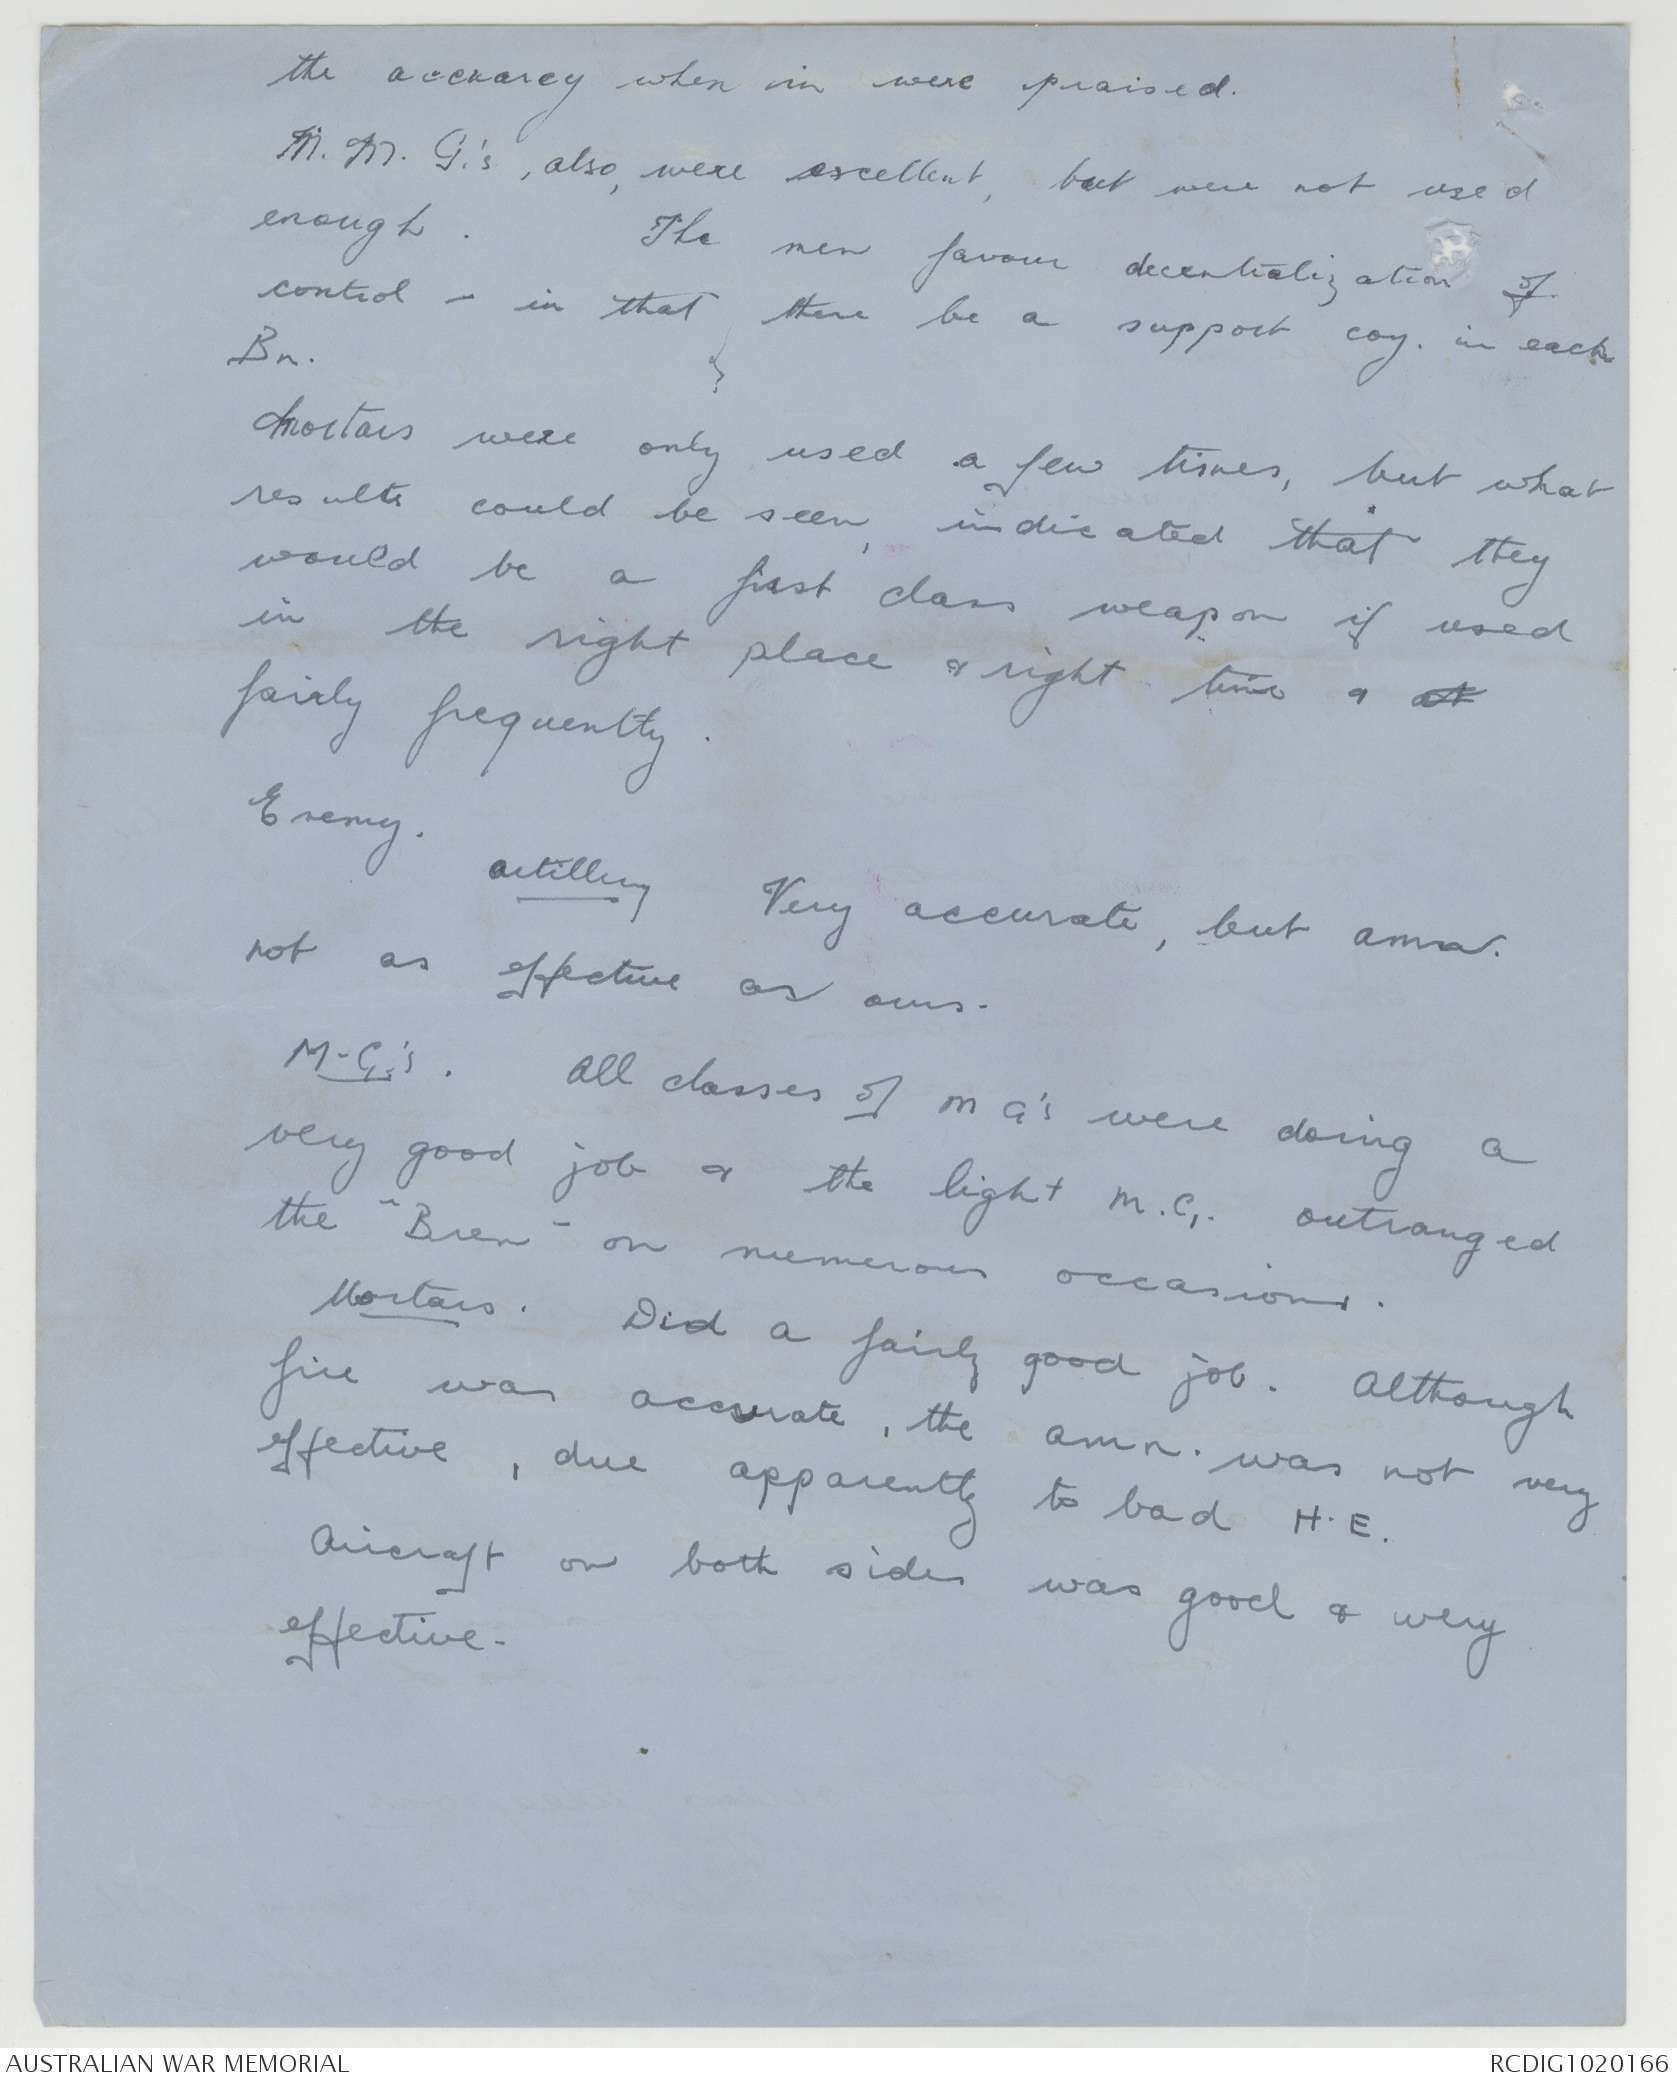 the accuracy when in were praised.
M. M. G.'s, also, were excellent, but were not used
enough. The men favour decentralization of
control - in that there be a support coy. in each
Bn.
Mortars were only used a few times, but what
results could be seen, indicated that they
would be a first class weapon if used
in the right place & right time & at
fairly frequently.
Enemy.
artillery Very accurate, but amn.
not as effective as ours.
M-G.'s. All classes of M G's were doing a
very good job & the light M.G. outranged
the "Bren" on numerous occasions.
Mortars. Did a fairly good job. Although
fire was accurate, the amn. was not very
effective, due apparently to bad H.E.
Aircraft on both sides was good & very
effective.
AUSTRALIAN WAR MEMORIAL
RCDIG1020166